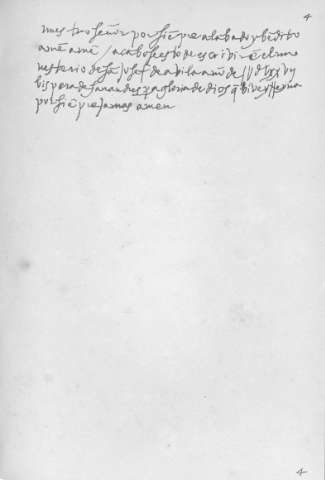 4
nuestro señor por sienpre alabado y bēdito
amē amē / acabose esto de escrivir ē el mo
nesterio de sā josef de avila año de
bispera de san andres pa gloria de dios q̄ bive y rreyna
por siēpre jamas amen
4